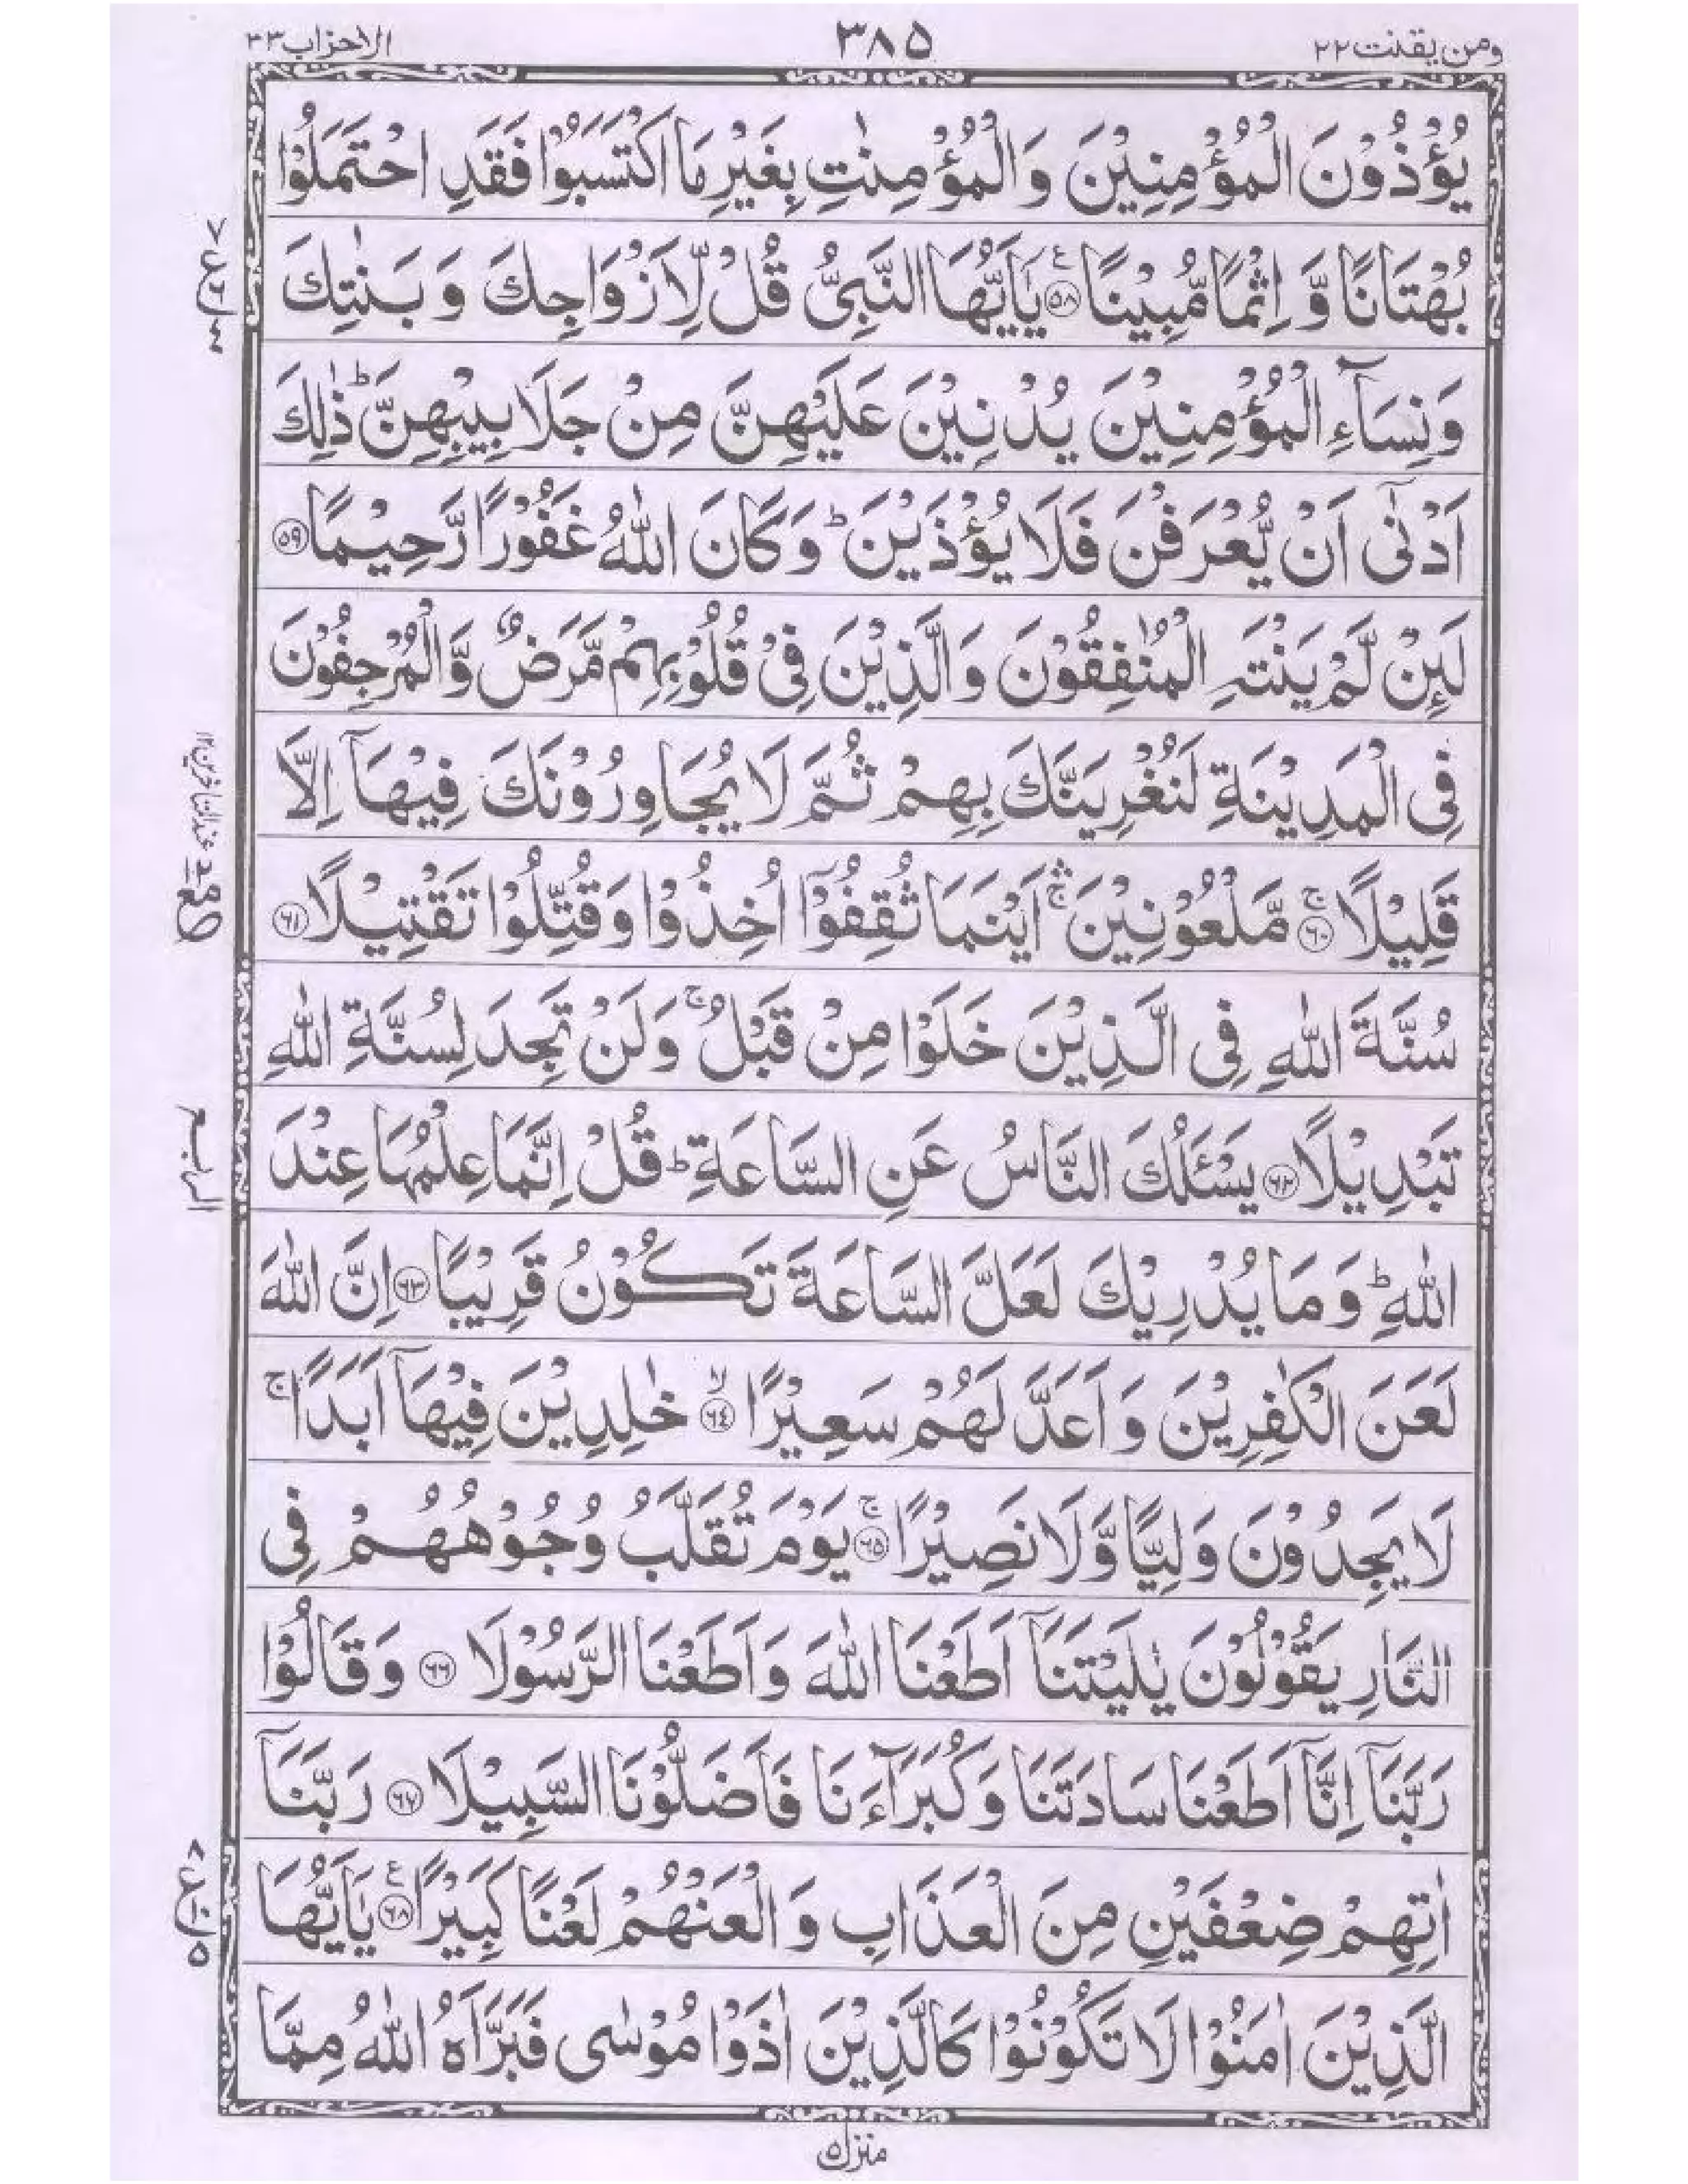 ومن یقنت ۲۲
۳۸۵
الاحزاب ۳۳
یُؤْذُوْنَ الْمُؤْمِنِیْنَ وَ الْمُؤْمِنٰتِ بِغَیْرِ مَا اكْتَسَبُوْا فَقَدِ احْتَمَلُوْا
بُهْتَانًا وَّ اِثْمًا مُّبِیْنًا ۵۸ ع یٰۤاَیُّهَا النَّبِیُّ قُلْ لِّاَزْوَاجِكَ وَ بَنٰتِكَ
وَ نِسَآءِ الْمُؤْمِنِیْنَ یُدْنِیْنَ عَلَیْهِنَّ مِنْ جَلَابِیْبِهِنَّ ؕ ذٰلِكَ
اَدْنٰۤی اَنْ یُّعْرَفْنَ فَلَا یُؤْذَیْنَ ؕ وَ كَانَ اللّٰهُ غَفُوْرًا رَّحِیْمًا ۵۹
لَىِٕنْ لَّمْ یَنْتَهِ الْمُنٰفِقُوْنَ وَ الَّذِیْنَ فِیْ قُلُوْبِهِمْ مَّرَضٌ وَّ الْمُرْجِفُوْنَ
فِی الْمَدِیْنَةِ لَنُغْرِیَنَّكَ بِهِمْ ثُمَّ لَا یُجَاوِرُوْنَكَ فِیْهَاۤ اِلَّا
قَلِیْلًا ۶۰ ۚۛ مَّلْعُوْنِیْنَ ۛۚ اَیْنَمَا ثُقِفُوْۤا اُخِذُوْا وَ قُتِّلُوْا تَقْتِیْلًا ۶۱
سُنَّةَ اللّٰهِ فِی الَّذِیْنَ خَلَوْا مِنْ قَبْلُ ۚ وَ لَنْ تَجِدَ لِسُنَّةِ اللّٰهِ
تَبْدِیْلًا ۶۲ یَسْـَٔلُكَ النَّاسُ عَنِ السَّاعَةِ ؕ قُلْ اِنَّمَا عِلْمُهَا عِنْدَ
اللّٰهِ ؕ وَ مَا یُدْرِیْكَ لَعَلَّ السَّاعَةَ تَكُوْنُ قَرِیْبًا ۶۳ اِنَّ اللّٰهَ
لَعَنَ الْكٰفِرِیْنَ وَ اَعَدَّ لَهُمْ سَعِیْرًا ۶۴ ۙ خٰلِدِیْنَ فِیْهَاۤ اَبَدًا ۚ
لَا یَجِدُوْنَ وَلِیًّا وَّ لَا نَصِیْرًا ۶۵ ۚ یَوْمَ تُقَلَّبُ وُجُوْهُهُمْ فِی
النَّارِ یَقُوْلُوْنَ یٰلَیْتَنَاۤ اَطَعْنَا اللّٰهَ وَ اَطَعْنَا الرَّسُوْلَا ۶۶ وَ قَالُوْا
رَبَّنَاۤ اِنَّاۤ اَطَعْنَا سَادَتَنَا وَ كُبَرَآءَنَا فَاَضَلُّوْنَا السَّبِیْلَا ۶۷ رَبَّنَاۤ
اٰتِهِمْ ضِعْفَیْنِ مِنَ الْعَذَابِ وَ الْعَنْهُمْ لَعْنًا كَبِیْرًا ۶۸ ع یٰۤاَیُّهَا
الَّذِیْنَ اٰمَنُوْا لَا تَكُوْنُوْا كَالَّذِیْنَ اٰذَوْا مُوْسٰی فَبَرَّاَهُ اللّٰهُ مِمَّا
الربع
منزل ۵